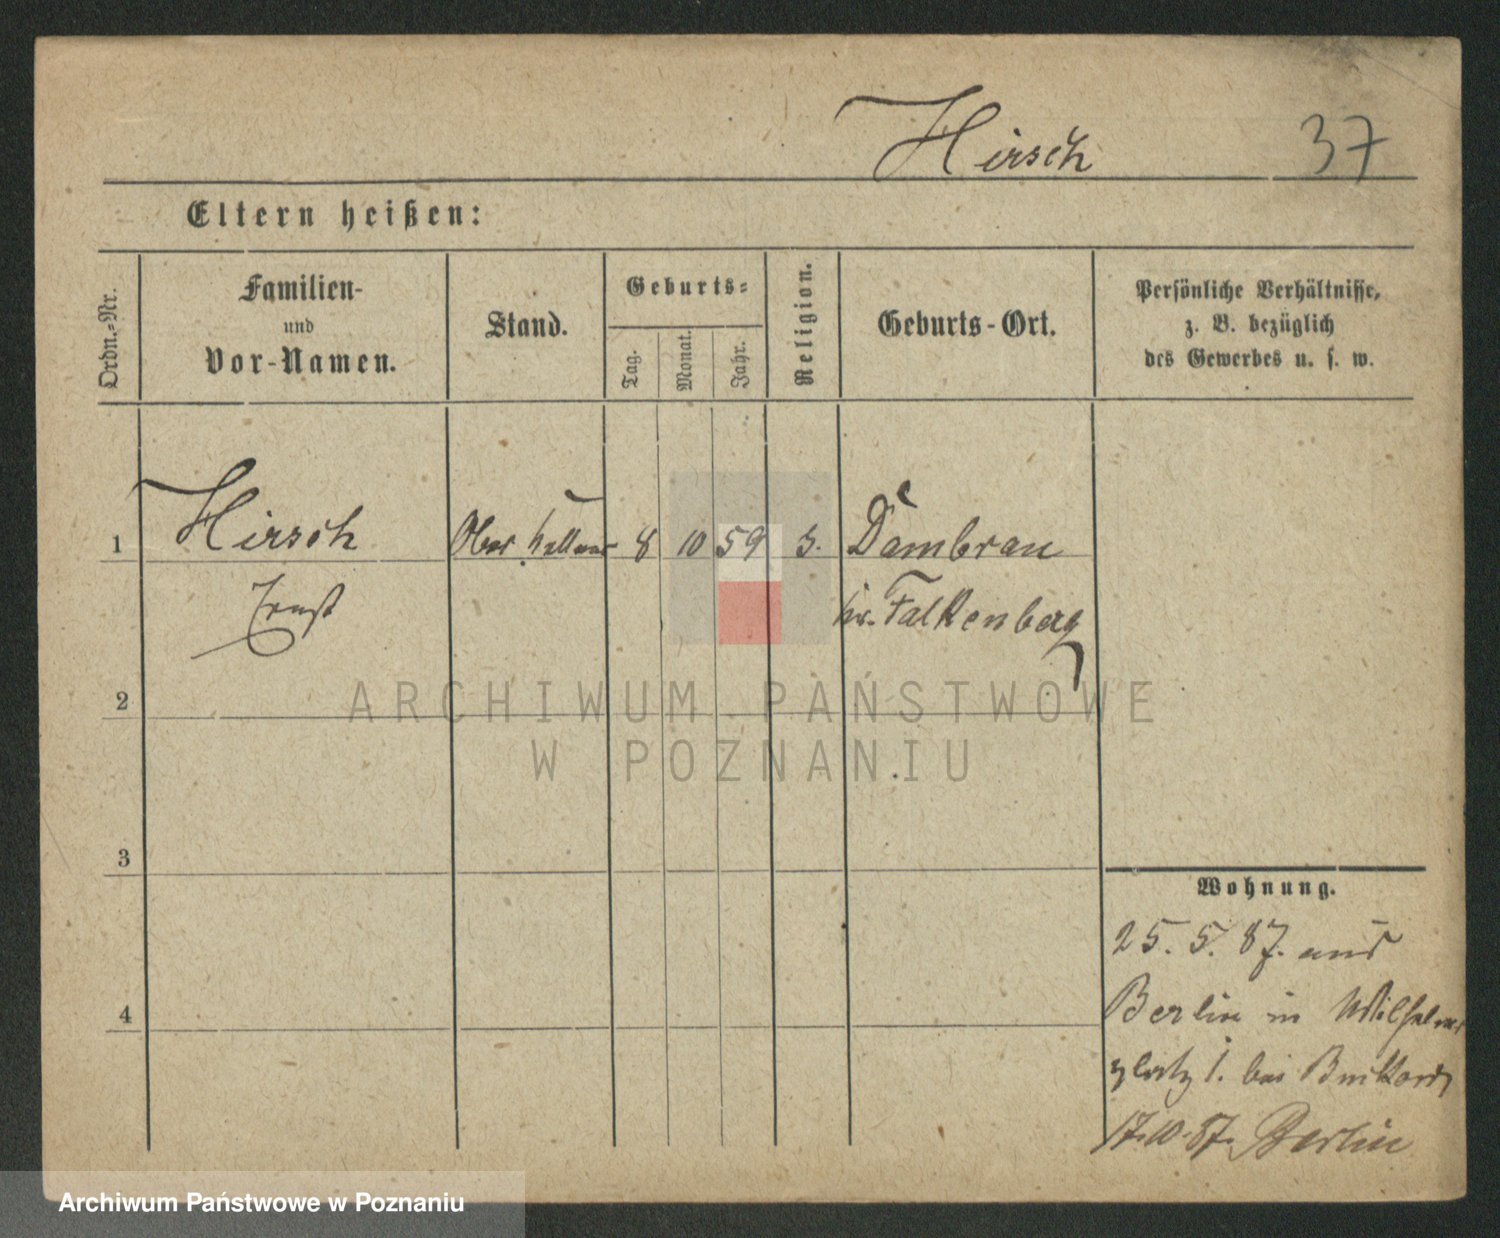 Hirsch 37
Eltern heißen:
Ordn.-Nr.
Familien-
und
Vor-Namen.
Stand.
Geburts-
Tag.
Monat.
Jahr.
Religion.
Geburts-Ort.
Persönliche Verhältnisse,
z. B. bezüglich
des Gewerbes u. s. w.
1 Hirsch Ober 8 10 59 Dambrau
Ernst Kr. Falkenberg
2
ARCHIWUM PAŃSTWOWE
W POZNANIU
3
Wohnung.
25. 5. 87. aus
4
Berlin in Wilhelms
platz 1. bei
17.10.87. Berlin
Archiwum Państwowe w Poznaniu